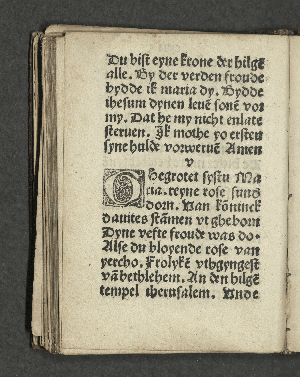 Du bist eyne krone der hilgē
alle. By der verden froude
bydde ik maria dy. Bydde
ihesum dynen leuē sonē vor
my. Dat he my nicht enlate
steruen. Jk mothe yo ersten
syne hulde vorweruē Amen
v
Ghegrotet systu Ma
ria. reyne rose sunđ
dorn. Van kōninck
dauites stāmen vt gheborn
Dyne vefte froude was do.
Alse du bloyende rose van
yercho. Frolykē vthgyngest
vā bethlehem. An den hilgē
tempel iherusalem. Vnde